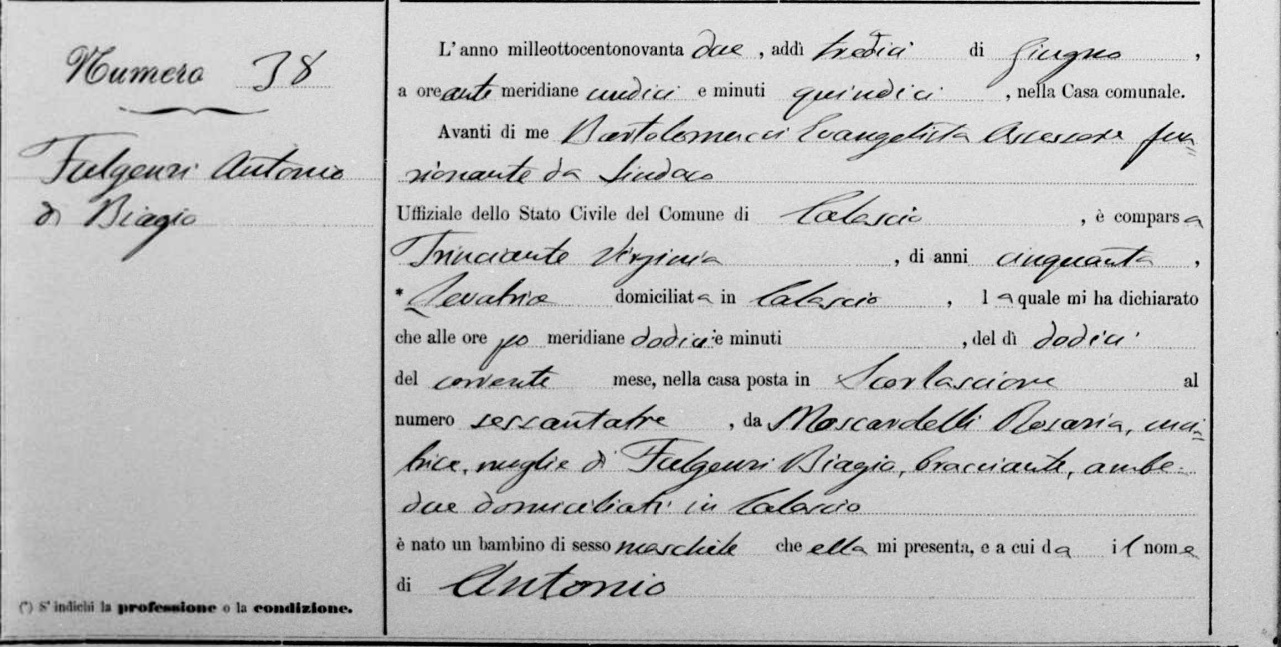 Numero 38
Fulgenzi Antonio
di Biagio
(*) S'indichi la professione o la condizione.
L'anno milleottocentonovanta due, addì tredici di Giugno,
a ore ante meridiane undici e minuti quindici, nella Casa comunale.
Avanti di me Bartolomucci Evangelista Assessore fun=
zionante da Sindaco
Uffiziale dello Stato Civile del Comune di Calascio, è comparsa
Trinciante Virginia, di anni cinquanta,
* Levatrice domiciliata in Calascio, la quale mi ha dichiarato
che alle ore po meridiane dodici e minuti , del dì dodici
del corrente mese, nella casa posta in al
numero sessantatre, da Moscardelli Rosaria, cuci=
trice, moglie di Fulgenzi Biagio, bracciante, ambe=
due domiciliati in Calascio
è nato un bambino di sesso maschile che ella mi presenta, e a cui da il nome
di Antonio